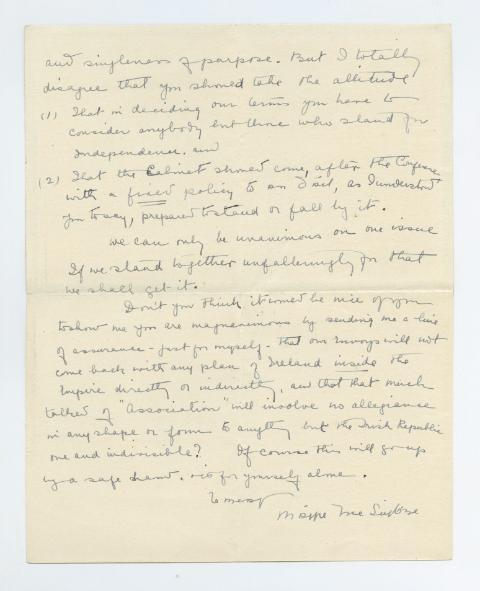 and singleness of purpose. But I totally
disagree that you should take the attitude
(1) That in deciding our terms you have to
consider anybody but those who stand for
Independence. and
(2) That the Cabinet should come, after the Conference
with a fixed policy to an Dáil, as I understood
you to say, prepared to stand or fall by it.
We can only be unanimous on one issue
If we stand together unfalteringly for that
we shall get it.
Don't you think it would be nice of you
to show me you are magnanimous by sending me a line
of assurance - just for myself - that our Envoys will not
come back with any plan of Ireland inside the
Empire directly or indirectly, and that that much
talked of "Association" will involve no allegiance
in any shape or form to anything but the Irish Republic
one and indivisible? Of course this will go up
by a safe hand. & is for yourself alone.